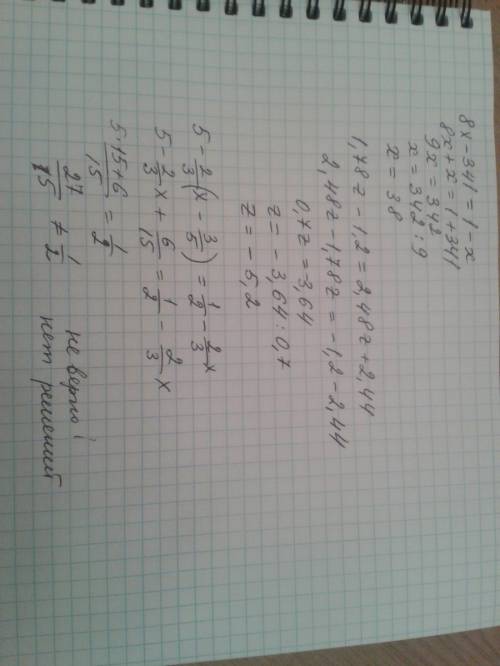 8x - 341 = 1 - x
8x + x = 1 + 341
9x = 342
x = 342 : 9
x = 38
1,78z - 1,2 = 2,48z + 2,44
2,48z - 1,78z = -1,2 - 2,44
0,7z = -3,64
z = -3,64 : 0,7
z = -5,2
5 - 2/3(x - 3/5) = 1/2 - 2/3x
5 - 2/3x + 6/15 = 1/2 - 2/3x
5·15+6/15 = 1/2
27/15 ≠ 1/2 не верно!
нет решений